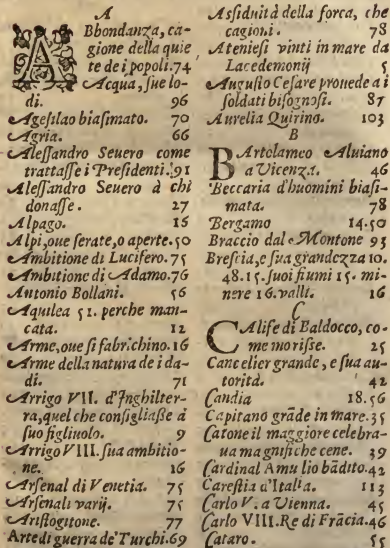 A
ABbondanza, ca-
gione della quie
te de i popoli. 74
Acqua, sue lo-
di. 96
Agesilao biasimato. 70
Agria. 66
Alessandro Seuero come
trattasse i Presidenti. 91
Alessandro Seuero à chi
donasse. 27
Alpago. 16
Alpi, oue serate, o aperte. 50
Ambitione di Lucifero. 75
Ambitione di Adamo. 76
Antonio Bollani. 56
Aquilea 51. perche man-
cata. 12
Arme, oue si fabrichino. 16
Arme della natura de i da-
di. 71
Arrigo VII. d'Inghilter-
ra, quel che consigliasse à
suo figliuolo. 9
Arrigo VIII. sua ambitio-
ne. 16
Arsenal di Venetia. 75
Arsenali varij. 75
Aristogitone. 77
Arte di guerra de' Turchi. 69
Assiduità della forca, che
cagioni. 78
Ateniesi vinti in mare da
Lacedemonij 5
Augusto Cesare prouede a i
soldati bisognosi. 87
Aurelia Quirino. 103
B
BArtolameo Aluiano
a Vicenza. 46
Beccaria d'huomini biasi-
mata. 78
Bergamo 14.50
Braccio dal Montone 93
Brescia, e sua grandezza 10.
48.15. suoi fiumi 15. mi-
nere 16. valli. 16
C
CAlife di Baldocco, co-
me morisse. 25
Cancelier grande, e sua au-
torità. 42
Candia 18.56
Capitano grãde in mare. 35
Catone il maggiore celebra-
ua magnifiche cene. 39
Cardinal Amulio bãdito. 42
Carestia d'Italia. 113
Carlo V. a Vienna. 45
Carlo VIII. Re di Frãcia. 46
Cataro. 55